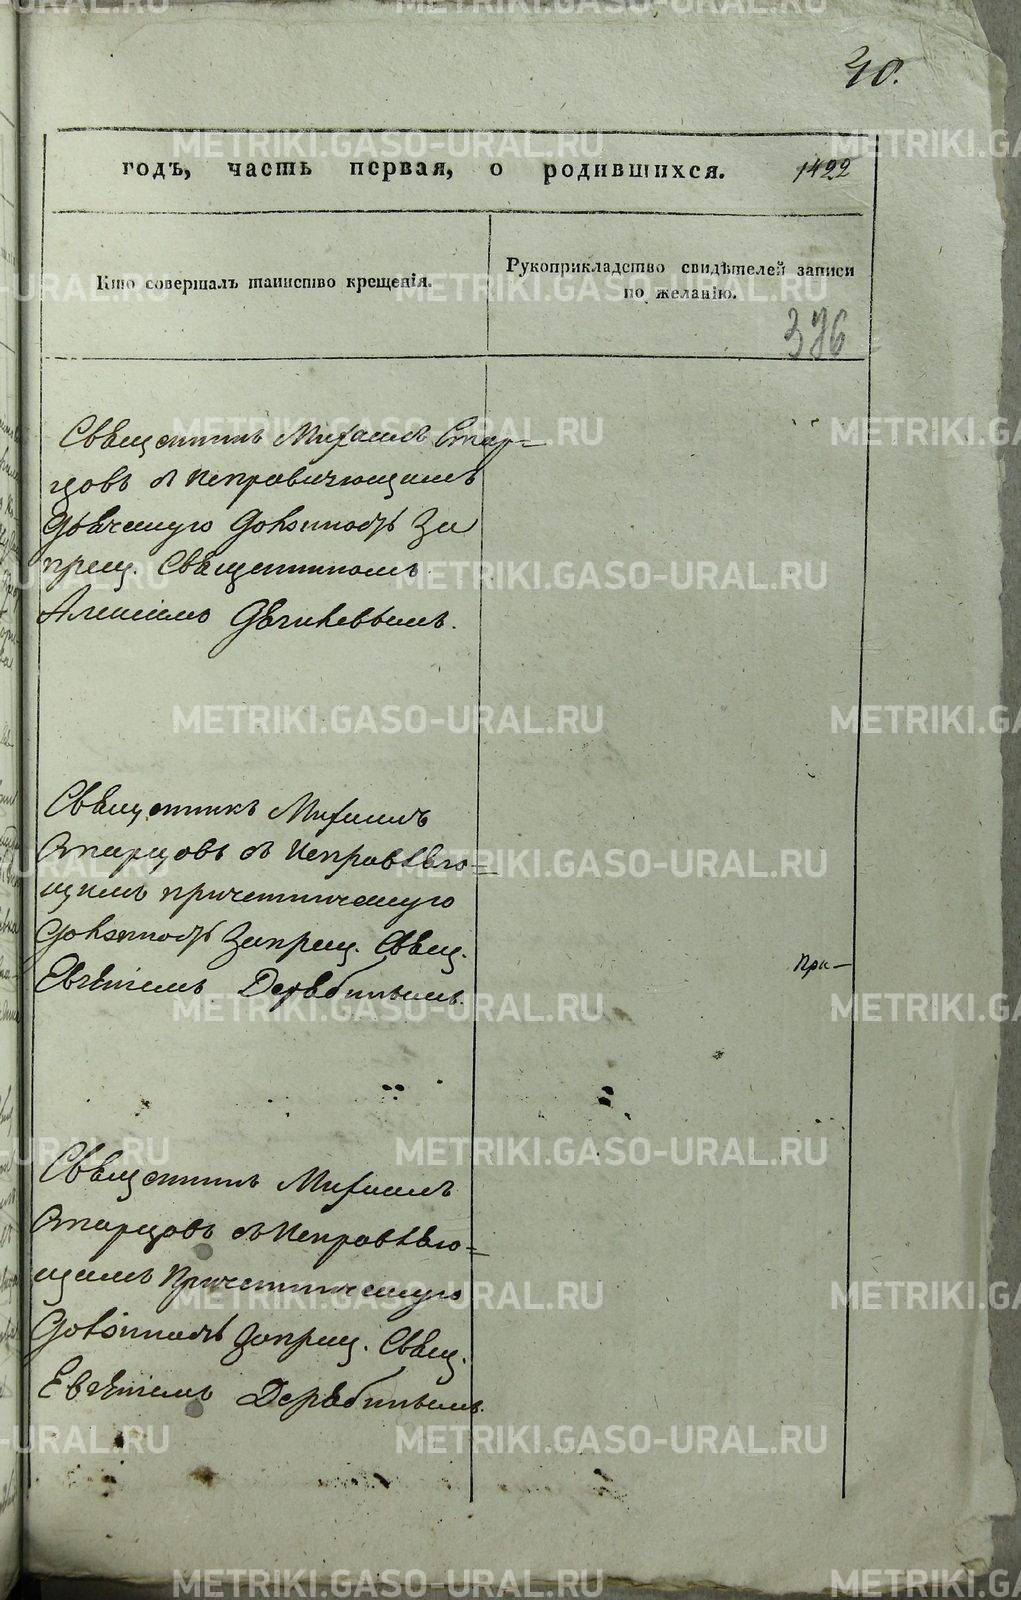 40.
годъ, часть первая, о родившихся. 1422
Кто совершалъ таинство крещенія.
Рукоприкладство свидѣтелей записи
по желанію.
376
Священникъ Михаилъ Стар=
цовъ съ исправляющимъ
должность За
прещ. Священникомъ
Алексіемъ
Священникъ Михаилъ
Старцовъ съ исправляю=
щимъ причетническую
должность Запрещ. Свящ.
Евгеніемъ Дерябинымъ.
При—
Священникъ Михаилъ
Старцовъ съ исправляю=
щимъ Причетническую
должность Запрещ. Свящ.
Евгеніемъ Дерябинымъ.
METRIKI.GASO-URAL.RU